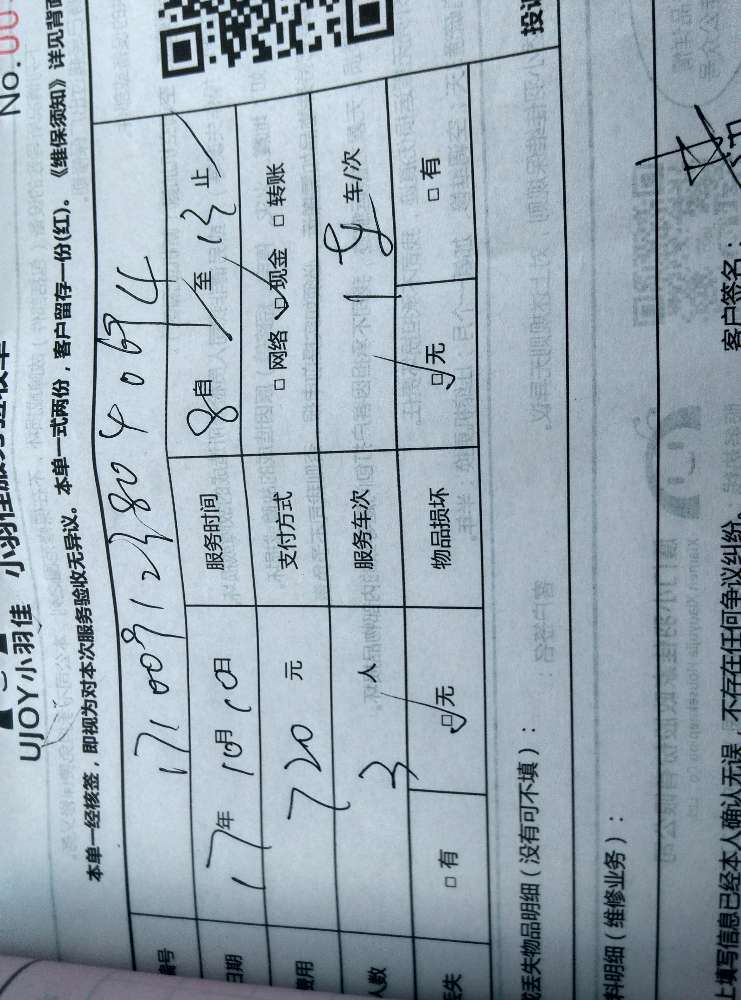 No.00
UJOY小羽佳 小羽佳服务验收单
本单一经核签，即视为对本次服务验收无异议。本单一式两份，客户留存一份(红)。《维保须知》详见背面
编号
日期 17年 10月 10日 服务时间 8自 至 13止
费用 720 元 支付方式 □网络 ☑现金 □转账
人数 3 人 服务车次 车/次
丢失 □有 ☑无 物品损坏 ☑无 □有
丢失物品明细（没有可不填）：
料明细（维修业务）：
上填写信息已经本人确认无误，不存在任何争议纠纷。 客户签名：
投诉